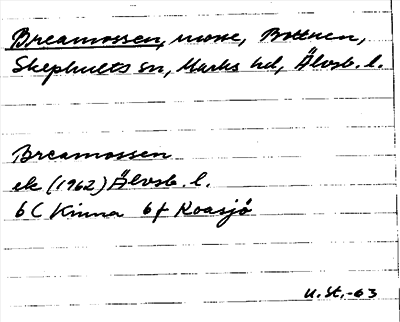 Breamossen, mosse, Bottnen,
Skephults sn, Marks hd, Älvsb. l.
Breamossen
ek (1962) Älvsb. l.
6 C Kinna 6f Roasjö
U. St. -63